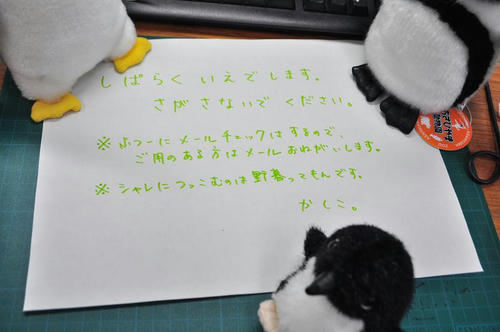 しばらく いえでします。
さがさないで ください。
※ ふつーにメールチェックはするので、
ご用のある方はメールおねがいします。
※ シャレにつっこむのは野暮ってもんです。
かしこ。